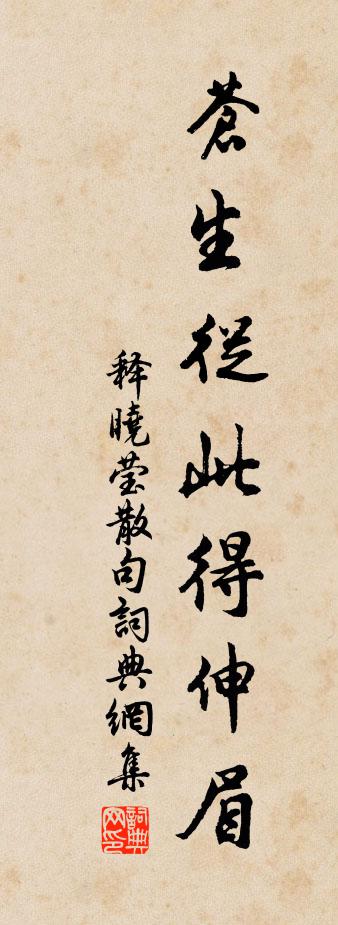 蒼生從此得伸眉
释曉莹散句詞典網集
詞典网印